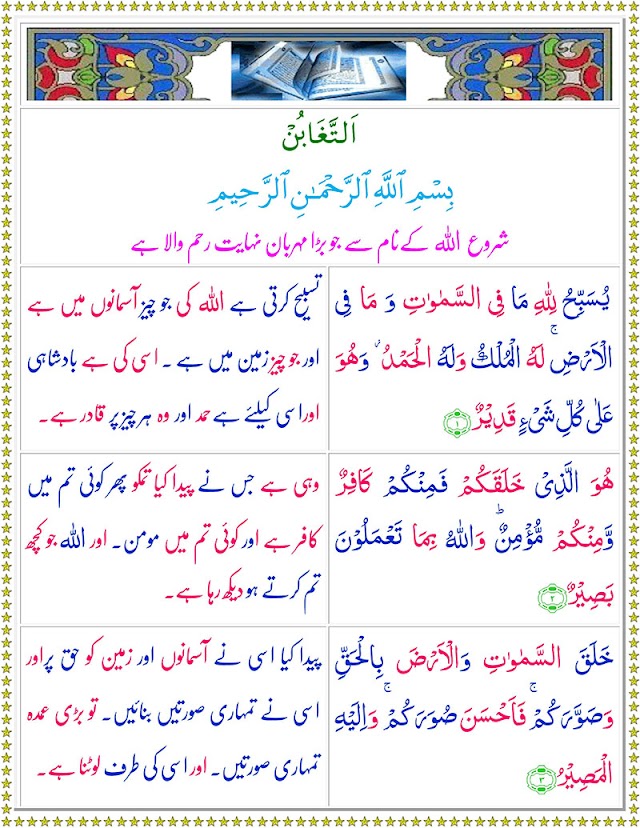 اَلتَّغَابُنْ
بِسْمِ ٱللَّهِ ٱلرَّحْمَـٰنِ ٱلرَّحِيمِ
شروع اللہ کے نام سے جو بڑا مہربان نہایت رحم والا ہے
يُسَبِّحُ لِلّٰهِ مَا فِى السَّمٰوٰتِ وَ مَا فِى
الْاَرْضِ‌ۚ لَهُ الْمُلْكُ وَلَهُ الْحَمْدُ‌ؗ وَهُوَ
عَلٰى كُلِّ شَىْءٍ قَدِيْرٌ ۝۱
تسبیح کرتی ہے اللہ کی جو چیز آسمانوں میں ہے
اور جو چیز زمین میں ہے ۔ اسی کی ہے بادشاہی
اور اسی کیلئے ہے حمد اور وہ ہر چیز پر قادر ہے۔
هُوَ الَّذِىْ خَلَقَكُمْ فَمِنْكُمْ كَافِرٌ
وَّمِنْكُمْ مُّؤْمِنٌ‌ؕ وَاللّٰهُ بِمَا تَعْمَلُوْنَ
بَصِيْرٌ ۝۲
وہی ہے جس نے پیدا کیا تمکو پھر کوئی تم میں
کافر ہے اور کوئی تم میں مومن۔ اور اللہ جو کچھ
تم کرتے ہو دیکھ رہا ہے۔
خَلَقَ السَّمٰوٰتِ وَالْاَرْضَ بِالْحَقِّ
وَصَوَّرَكُمْ‌ۚ فَاَحْسَنَ صُوَرَكُمْ‌ۚ وَاِلَيْهِ
الْمَصِيْرُ ۝۳
پیدا کیا اسی نے آسمانوں اور زمین کو حق پر اور
اسی نے تمہاری صورتیں بنائیں۔ تو بڑی عمدہ
تمہاری صورتیں۔ اور اسی کی طرف لوٹنا ہے۔